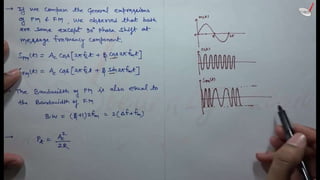 → If we compare the General expressions
of PM & FM, we observe that both
are same except 90° phase shift at
message frequency component.
S_PM(t) = Ac Cos[2πfct + β Cos2πfmt]
S_FM(t) = Ac Cos[2πfct + β Sin2πfmt]
→ The Bandwidth of PM is also equal to
the Bandwidth of FM
B.W = (β+1)2fm = 2(Δf+fm)
→ Pt = Ac²/2R
m(t)
c(t)